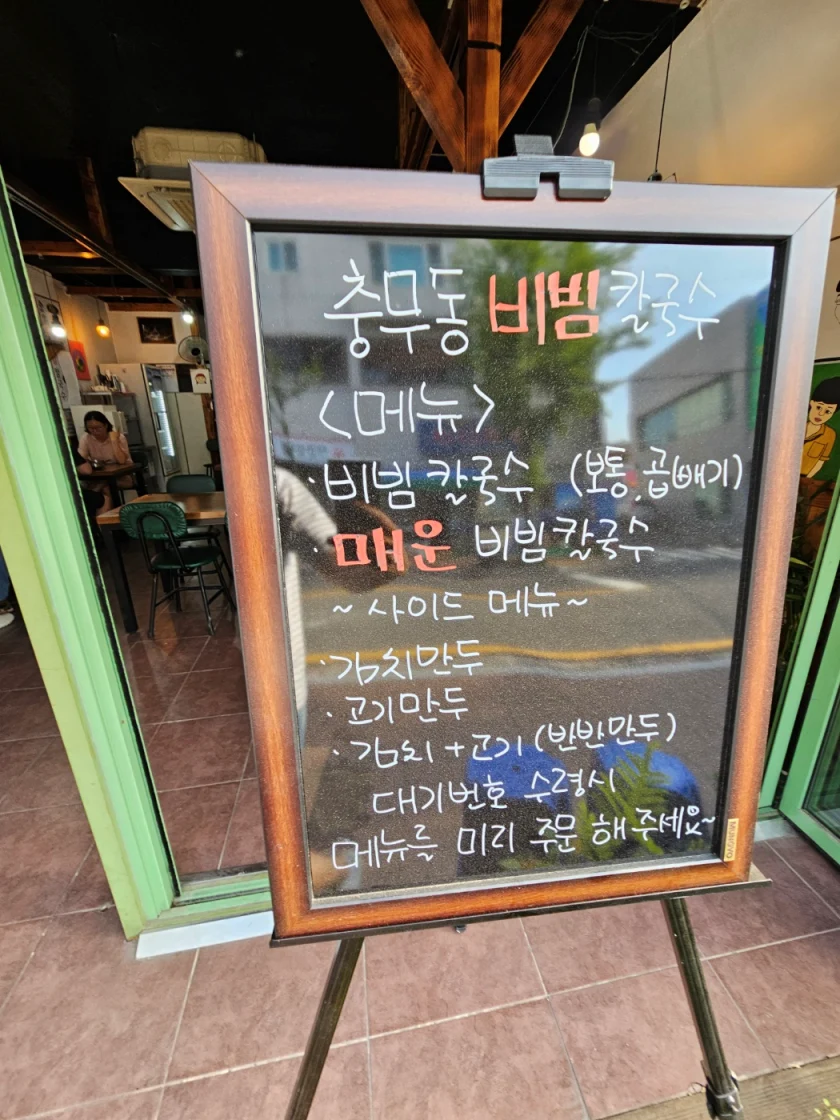 충무동 비빔 칼국수
<메뉴>
· 비빔 칼국수 (보통, 곱빼기)
· 매운 비빔칼국수
~ 사이드 메뉴 ~
· 김치만두
· 고기만두
· 김치+고기 (반반만두)
대기번호 수령시
메뉴를 미리 주문 해 주세요~
MUNGYO